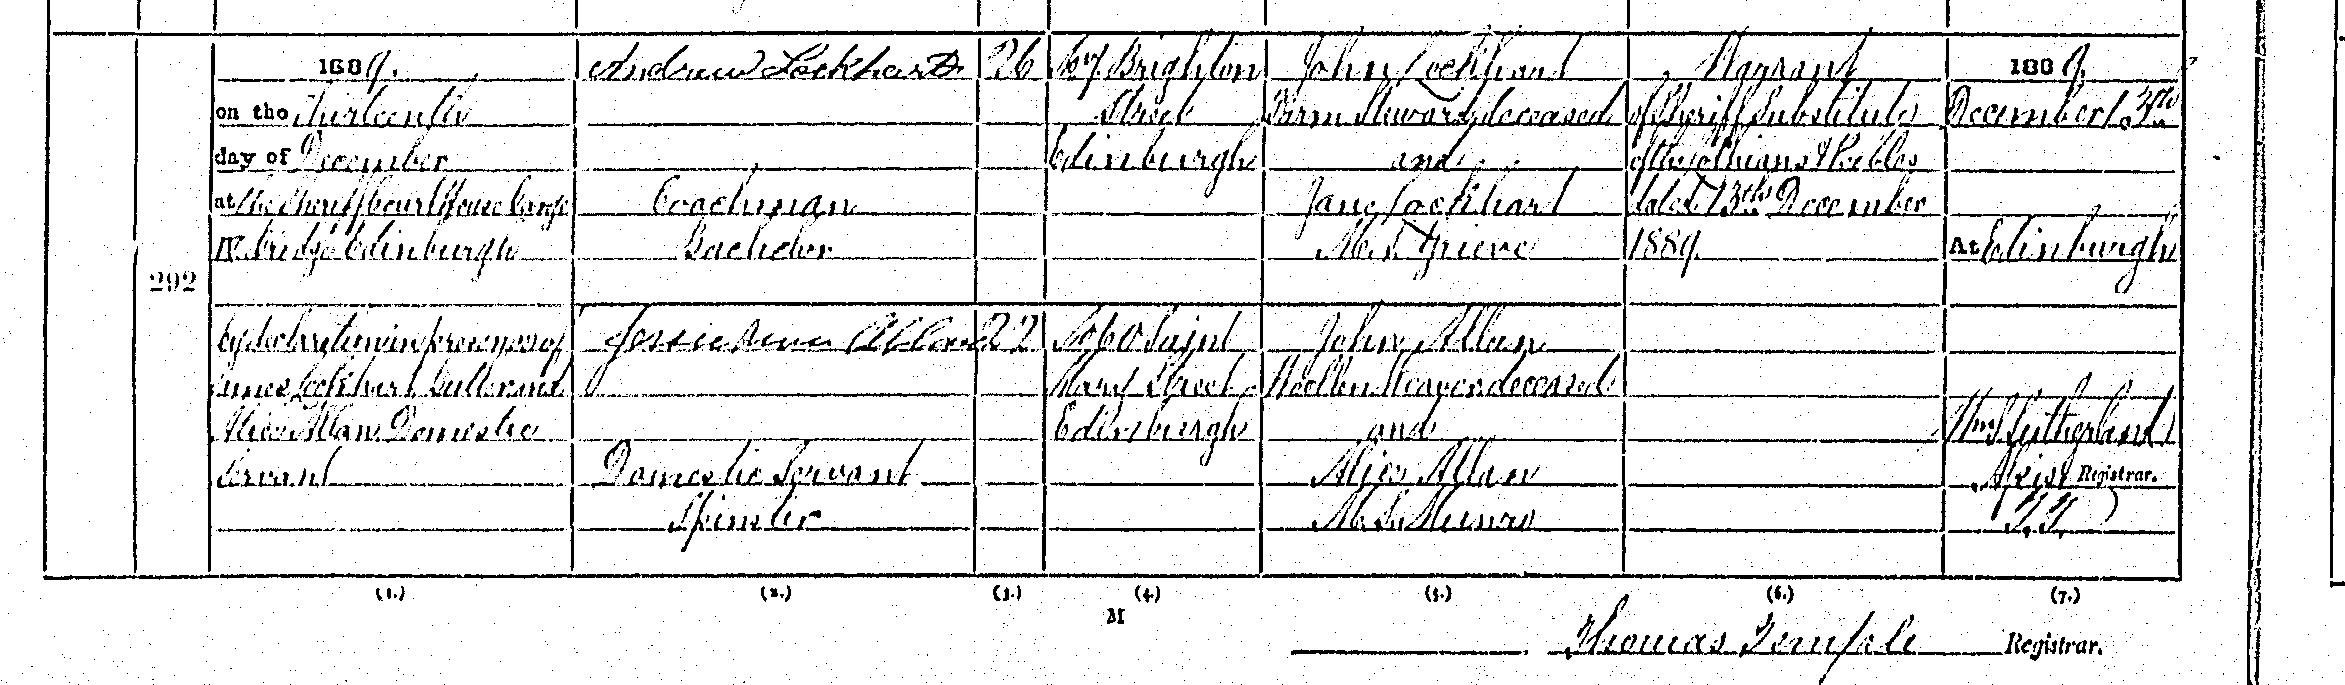 1889.
on the Thirteenth
day of December
at the Sheriff Court House George
IV. Bridge Edinburgh
292
by declaration in presence of
James Lockhart Butler and
Alice Allan Domestic
Servant
(1.)
Andrew Lockhart
Coachman
Bachelor
Jessie Allan
Domestic Servant
Spinster
(2.)
26
22
(3.)
67 Brighton
Street
Edinburgh
60 Saint
Mary Street
Edinburgh
(4.)
M
John Lockhart
Farm Steward deceased
and
Jane Lockhart
M.S. Grieve
John Allan
Woollen Weaver deceased
and
Alice Allan
M.S. Munro
(5.)
Warrant
of Sheriff Substitute
of the Lothians & Peebles
dated 13th December
1889.
(6.)
1889.
December 13th
At Edinburgh
Wm Sutherland
Assist Registrar.
(7.)
Thomas Temple Registrar.